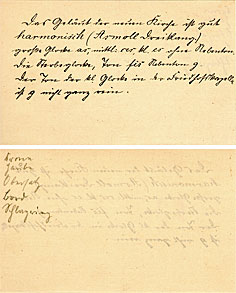 Das Geläut der neuen Kirche ist gut
harmonisch (As moll Dreiklang.)
große Glocke as, mittl. ces, kl. es ohne Nebenton.
Die Sterbeglocke, Ton fis Nebenton g.
Der Ton der kl Glocke in der Friedhofskapelle
ist g nicht ganz rein.
Krone
Haube
Obersatz
Bord
Schlagring